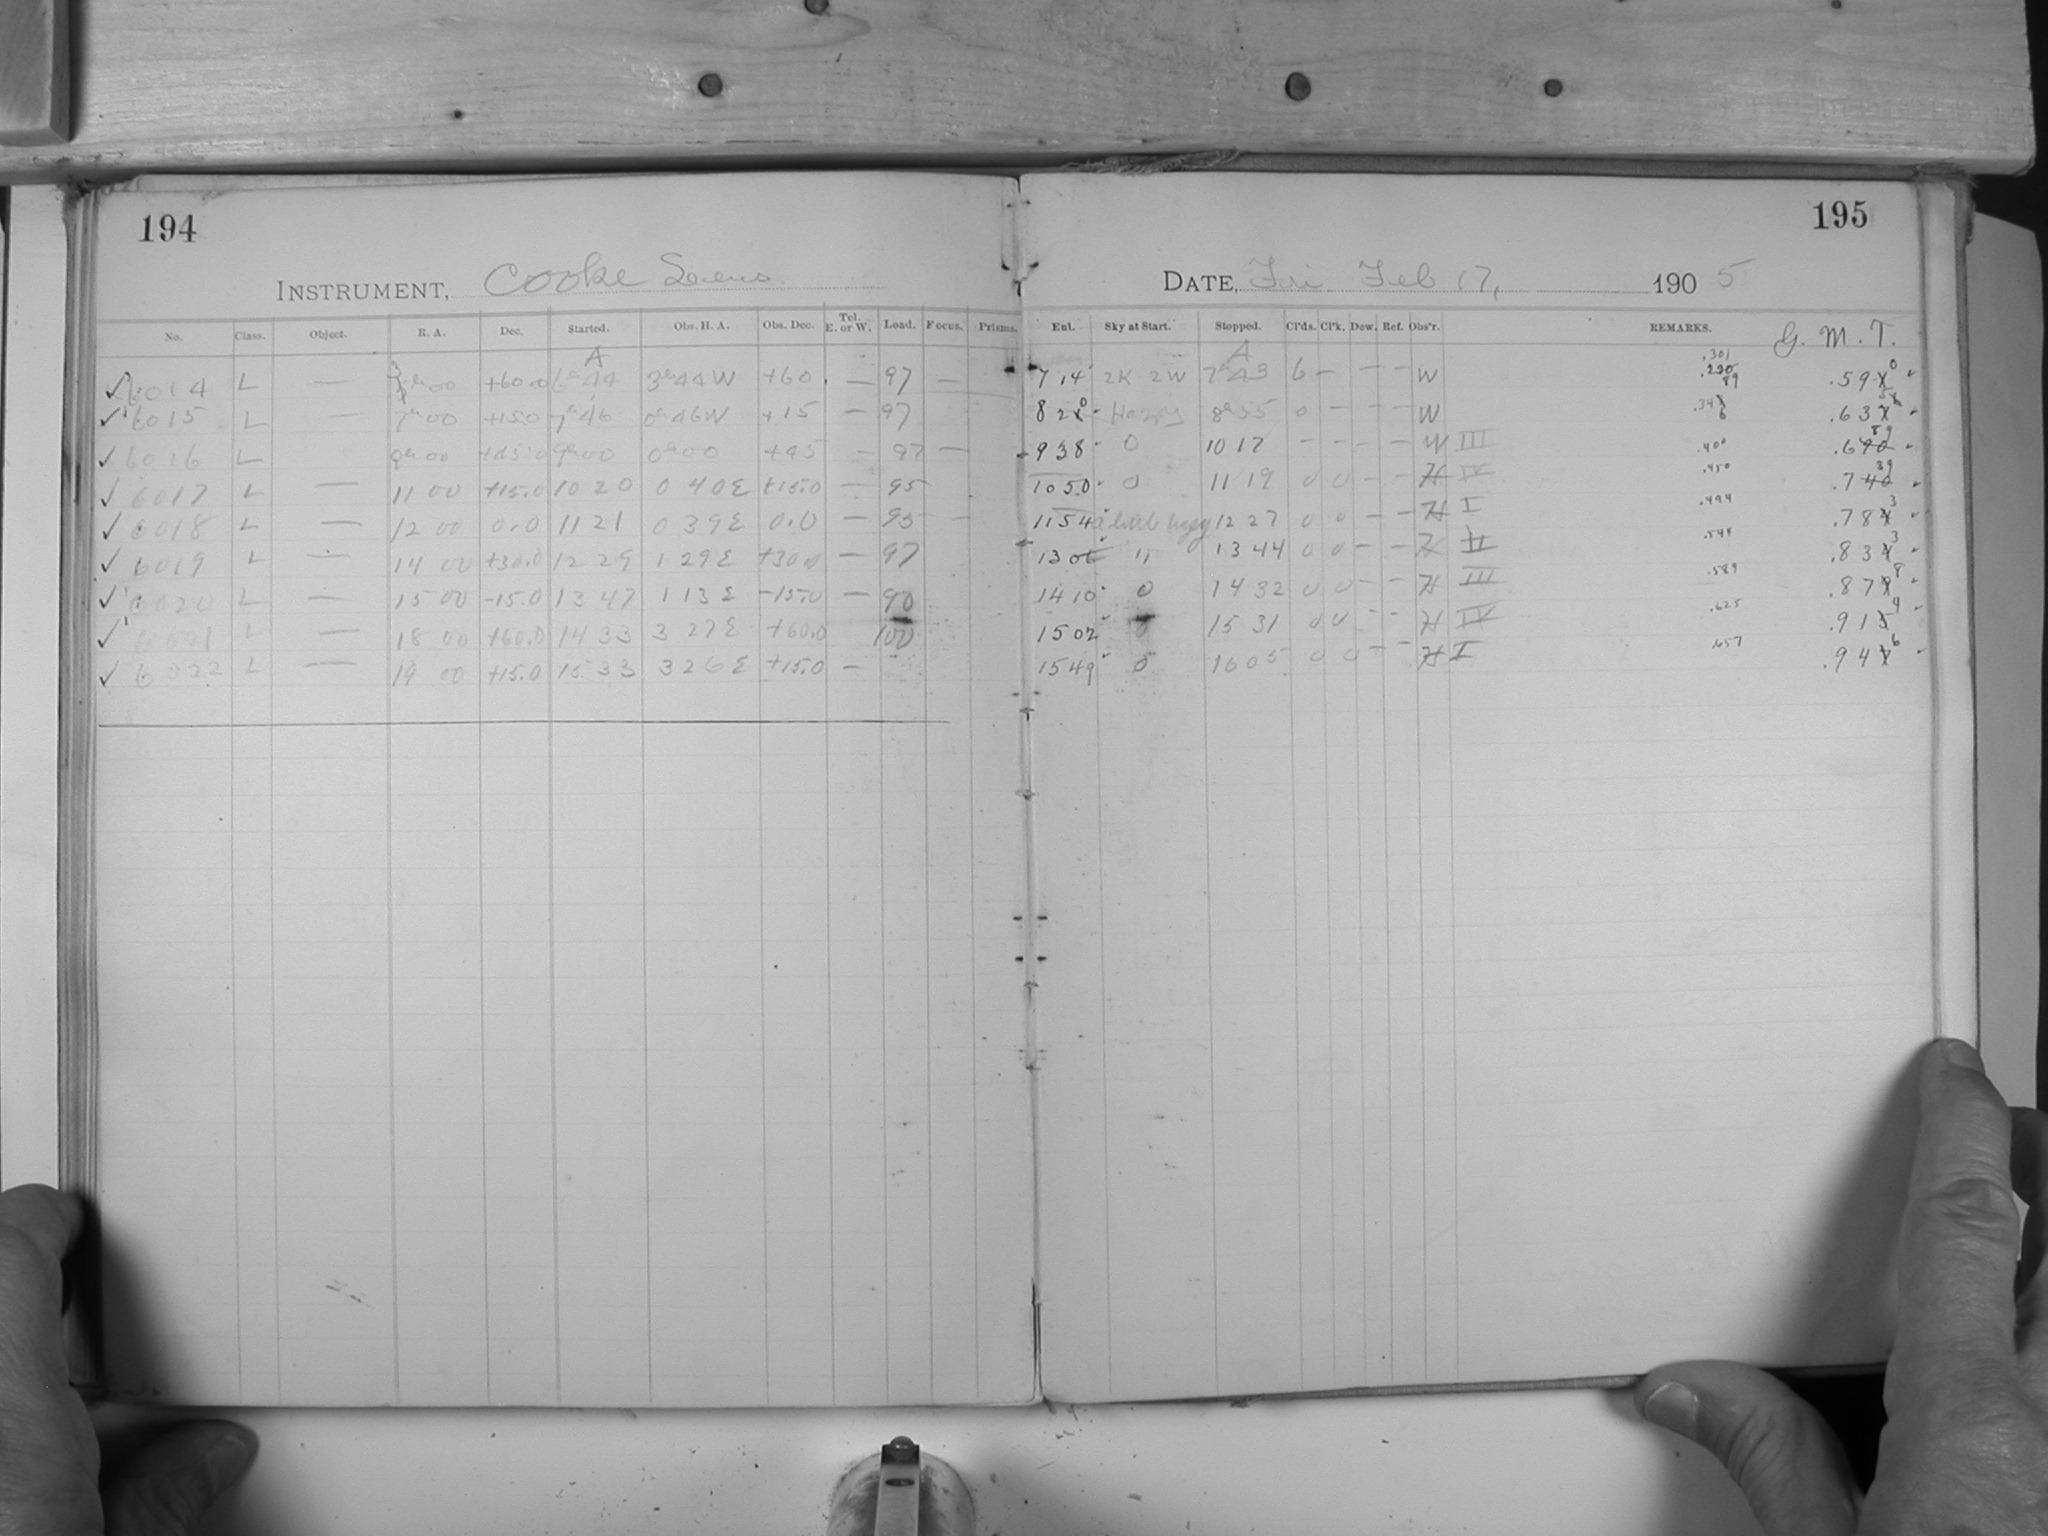 194
195
INSTRUMENT, Cooke Lens
DATE, Fri Feb 17, 1905
No. Class. Object. R. A. Dec. Started. Obs. H. A. Obs. Dec. Tel. E. or W. Load. Focus. Prisms. Enl. Sky at Start. Stopped. Cl'ds. Cl'k. Dew. Ref. Obs'r. REMARKS. G. M. T.
A A
✓ 6014 L — 00 +60.0 6h 44 3h 44 W +60. — 97 — 7 14 2K 2W 7h 43 6 — — — W .301 .59
✓ 6015 L — 7h 00 +15.0 7h 46 0h 46 W +15 — 97 8 2 Hazy 8h 55 0 — — — W .34 .63
✓ 6016 L — 9h 00 +45.0 9h 00 0h 00 +45 — 97 — 9 38 0 10 17 — — — — W III .400 .690 89
✓ 6017 L — 11 00 +15.0 10 20 0 40 E +15.0 — 95 10 50 0 11 19 0 0 — — H IV .450 .740 39
✓ 6018 L — 12 00 0.0 11 21 0 39 E 0.0 — 95 — 11 54 a little hazy 12 27 0 0 — — H I .494 .78 3
✓ 6019 L — 14 00 +30.0 12 29 1 29 E +30.0 — 97 13 06 " 13 44 0 0 — — H II .83 3
✓ 6020 L — 15 00 -15.0 13 47 1 13 E -15.0 — 90 14 10 0 14 32 0 0 — — H III .589 .87 8
✓ 6021 L — 18 00 +60.0 14 33 3 27 E +60.0 100 15 02 0 15 31 0 0 — — H IV .625 .915 4
✓ 6022 L — 19 00 +15.0 15 33 3 26 E +15.0 — 15 49 0 16 05 0 0 — — H I .657 .94 6